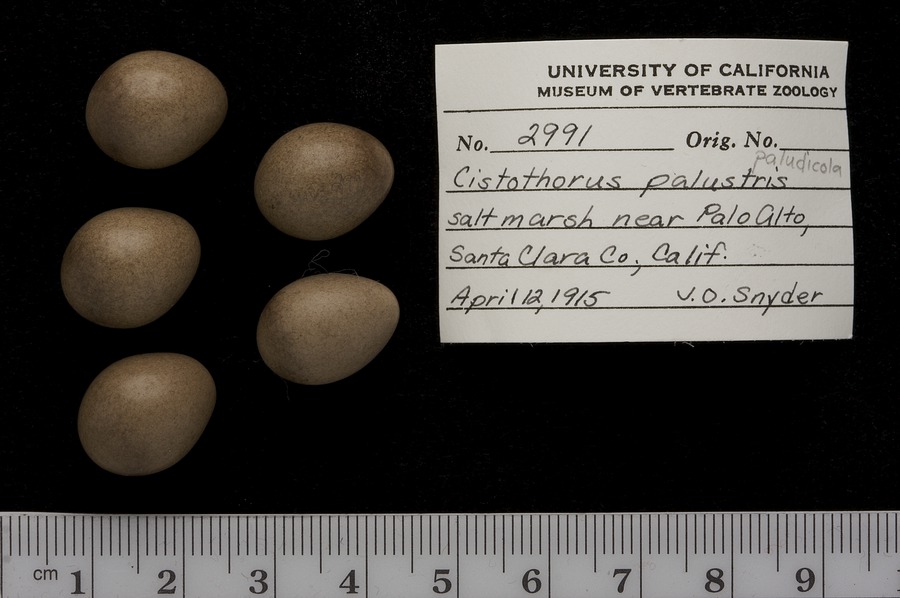 UNIVERSITY OF CALIFORNIA
MUSEUM OF VERTEBRATE ZOOLOGY
No. 2991 Orig. No.
paludicola
Cistothorus palustris
salt marsh near Palo Alto,
Santa Clara Co., Calif.
April 12, 1915 J. O. Snyder
cm 1 2 3 4 5 6 7 8 9 1